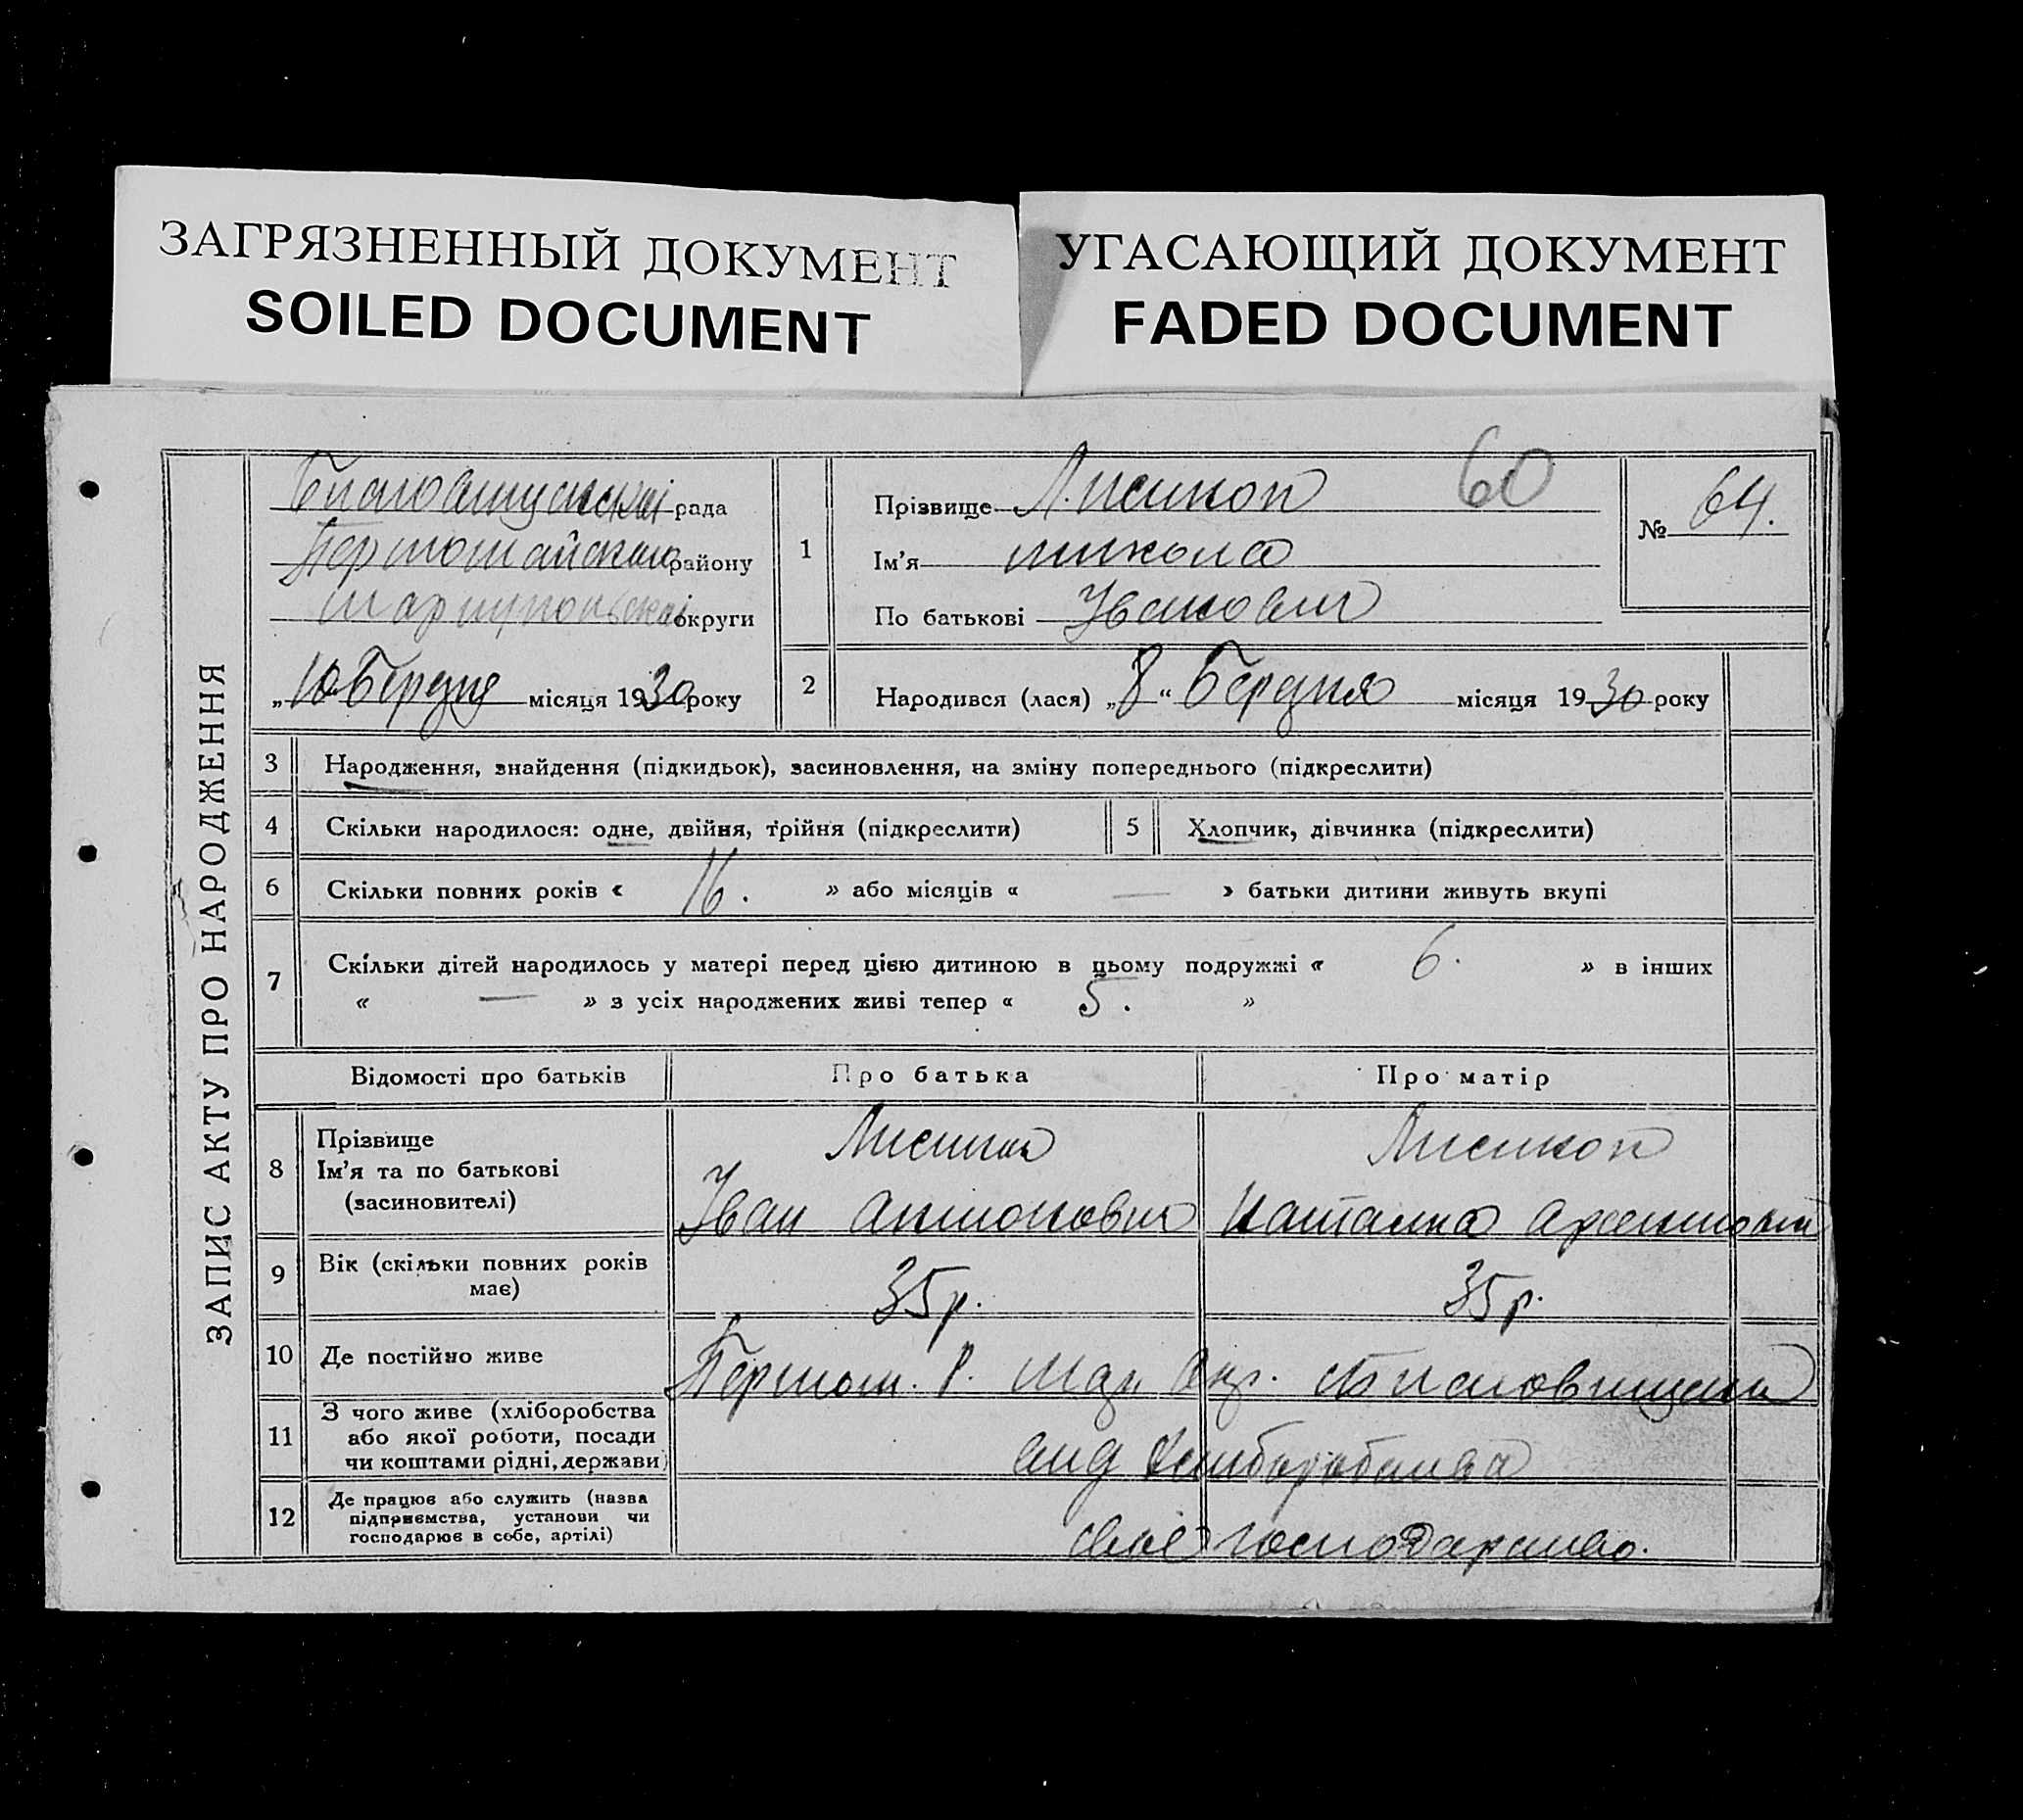 ЗАГРЯЗНЕННЫЙ ДОКУМЕНТ
SOILED DOCUMENT
УГАСАЮЩИЙ ДОКУМЕНТ
FADED DOCUMENT
ЗАПИС АКТУ ПРО НАРОДЖЕННЯ
рада
району
Маріупольської округи
„10 Березня місяця 1930 року
60
№ 64.
1
Прізвище
Ім'я Микола
По батькові Іванович
2 Народився (лася) „8“ Березня місяця 1930 року
3 Народження, знайдення (підкидьок), засиновлення, на зміну попереднього (підкреслити)
4 Скільки народилося: одне, двійня, трійня (підкреслити)
5 Хлопчик, дівчинка (підкреслити)
6 Скільки повних років « 16. » або місяців « — » батьки дитини живуть вкупі
7 Скільки дітей народилось у матері перед цією дитиною в цьому подружжі « 6. » в інших
« — » з усіх народжених живі тепер « 5. »
Відомості про батьків Про батька Про матір
8 Прізвище
Ім'я та по батькові
(засиновителі)
Іван Антонович
Наталка
9 Вік (скільки повних років
має)
35 р. 35 р.
10 Де постійно живе
11 З чого живе (хліборобства
або якої роботи, посади
чи коштами рідні, держави)
від хліборобства
12 Де працює або служить (назва
підприємства, установи чи
господарює в себе, артілі)
своє господарство.